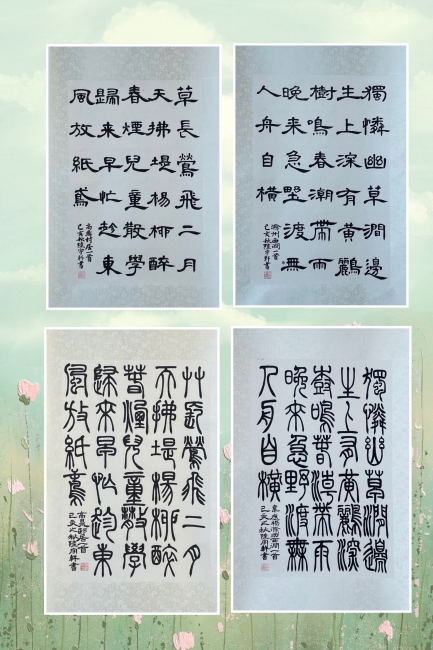 草長鶯飛二月
天拂堤楊柳醉
春煙兒童散學
歸來早忙趁東
風放紙鳶
高鼎村居一首
己亥秋陸宇軒書
獨憐幽草澗邊
生上深有黄鸝
樹鳴春潮帶雨
晚來急埜渡無
人舟自橫
滁州西澗一首
己亥秋陸宇軒書
艸長鶯飛二月
天拂堤楊柳醉
春煙兒童散學
歸來早忙趁東
風放紙鳶
高鼎村居一首
己亥之秋陸宇軒書
獨憐幽草澗邊
生上有黄鸝深
樹鳴春潮帶雨
晚來急野渡無
人舟自橫
韋應物滁州西澗一首
己亥之秋陸宇軒書